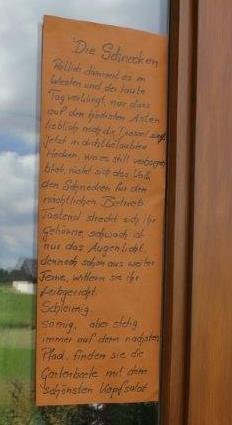 Die Schnecken
Rötlich dämmert es im
Westen und der laute
Tag verklingt, nur dass
auf den höchsten Ästen
lieblich noch die Drossel singt.
Jetzt in dichtbelaubten
Hecken, wo es still verborgen
blieb, rüstet sich das Volk
der Schnecken für den
nächtlichen Betrieb.
Tastend streckt sich ihr
Gehörne. schwach ist
nur das Augenlicht,
dennoch schon aus weiter
Ferne, wittern sie ihr
Leibgericht.
Schleimig.
säumig, aber stetig
immer auf dem nächsten
Pfad, finden sie die
Gartenbeete mit dem
schönsten Kopfsalat.